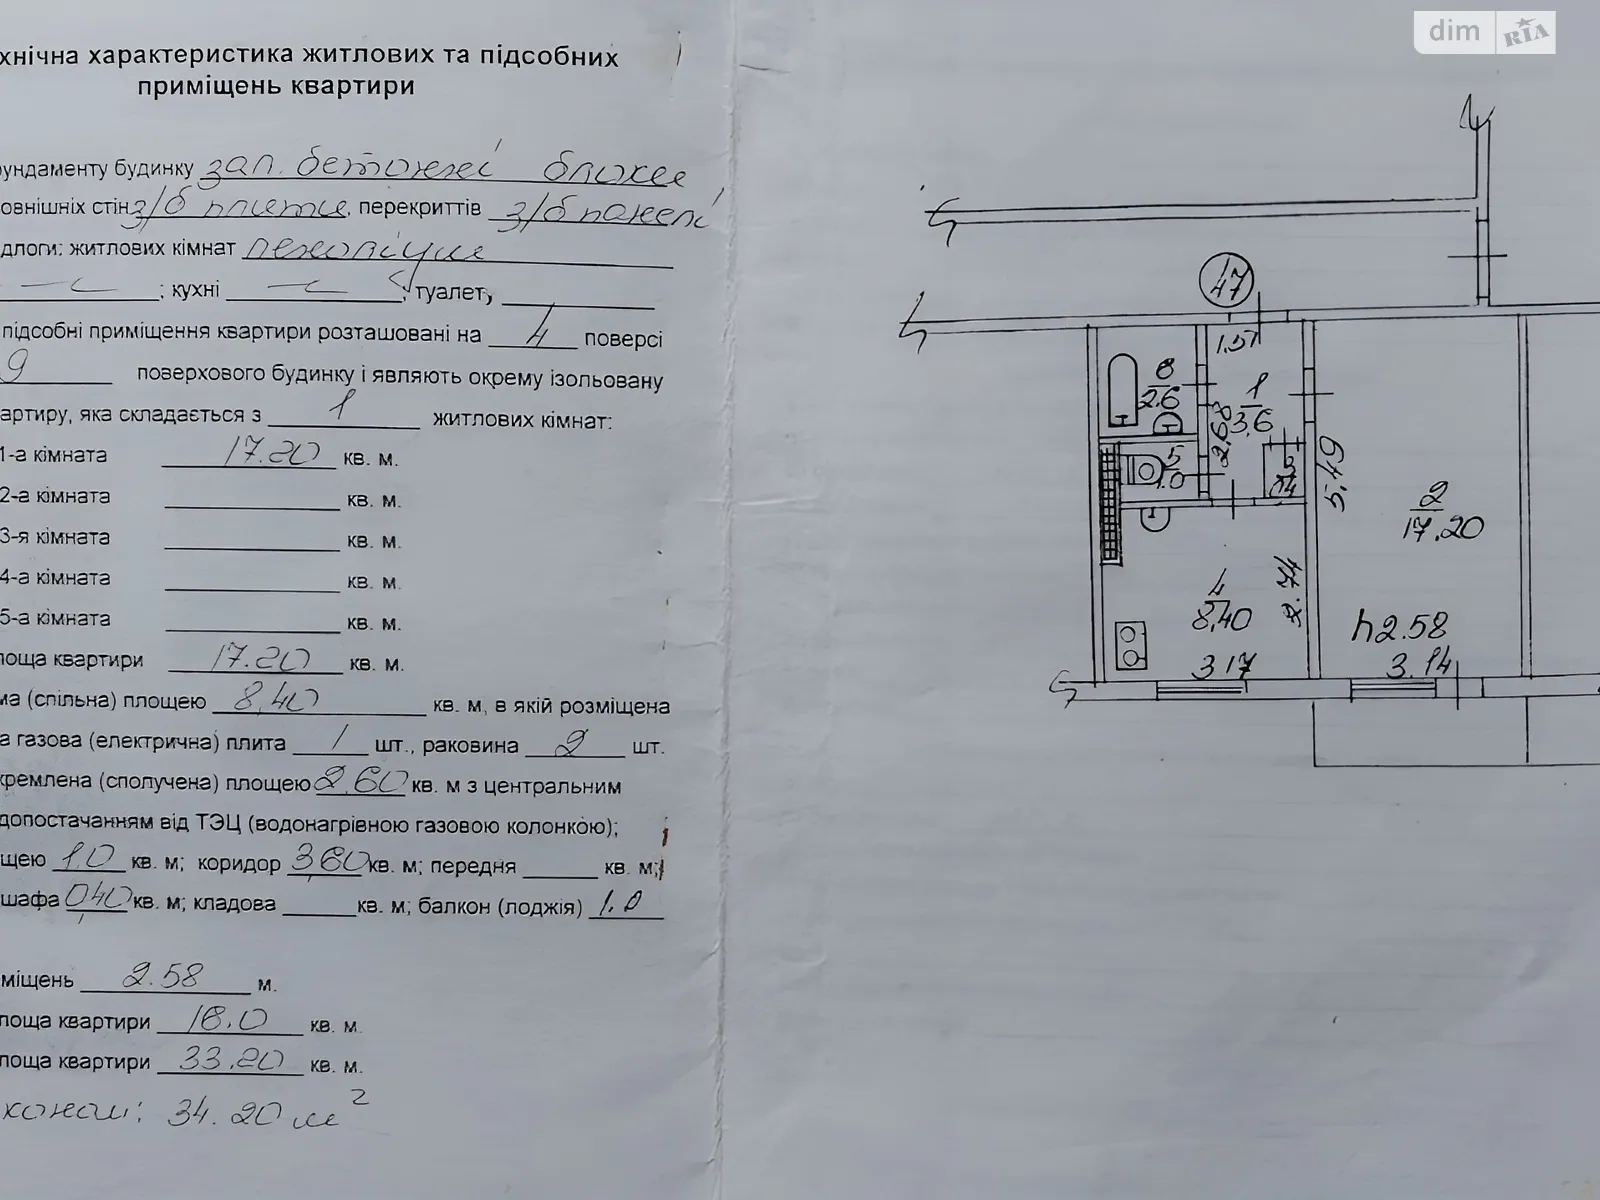 dim RIA
хнічна характеристика житлових та підсобних
приміщень квартири
фундаменту будинку зал. бетонні блоки
овнішніх стін з/б плити, перекриттів з/б панелі
длоги: житлових кімнат лінолеум
; кухні ; туалет,
підсобні приміщення квартири розташовані на 4 поверсі
9 поверхового будинку і являють окрему ізольовану
артиру, яка складається з 1 житлових кімнат:
1-а кімната 17.20 кв. м.
2-а кімната кв. м.
3-я кімната кв. м.
4-а кімната кв. м.
5-а кімната кв. м.
лоща квартири 17.20 кв. м.
ма (спільна) площею 8,40 кв. м, в якій розміщена
а газова (електрична) плита 1 шт., раковина 2 шт.
кремлена (сполучена) площею 2,60 кв. м з центральним
допостачанням від ТЭЦ (водонагрівною газовою колонкою);
щею 1.0 кв. м; коридор 3,60 кв. м; передня кв. м;
шафа 0,40 кв. м; кладова кв. м; балкон (лоджія) 1.0
міщень 2.58 м.
лоща квартири 16.0 кв. м.
лоща квартири 33.20 кв. м.
34.20 м²
47
1.57
6
2.6
1
3,6
2.68
5
1.0
0,4
5,49
2
17.20
4
8,40
2.74
h2.58
3.17
3.14